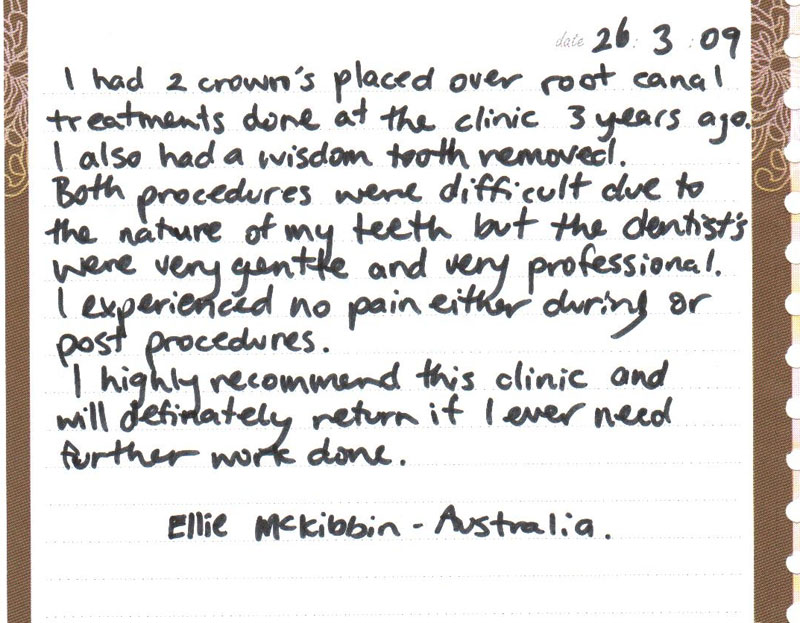 date 26 : 3 : 09
I had 2 crown's placed over root canal
treatments done at the clinic 3 years ago.
I also had a wisdom tooth removed.
Both procedures were difficult due to
the nature of my teeth but the dentist's
were very gentle and very professional.
I experienced no pain either during or
post procedures.
I highly recommend this clinic and
will definately return if I ever need
further work done.
Ellie McKibbin - Australia.